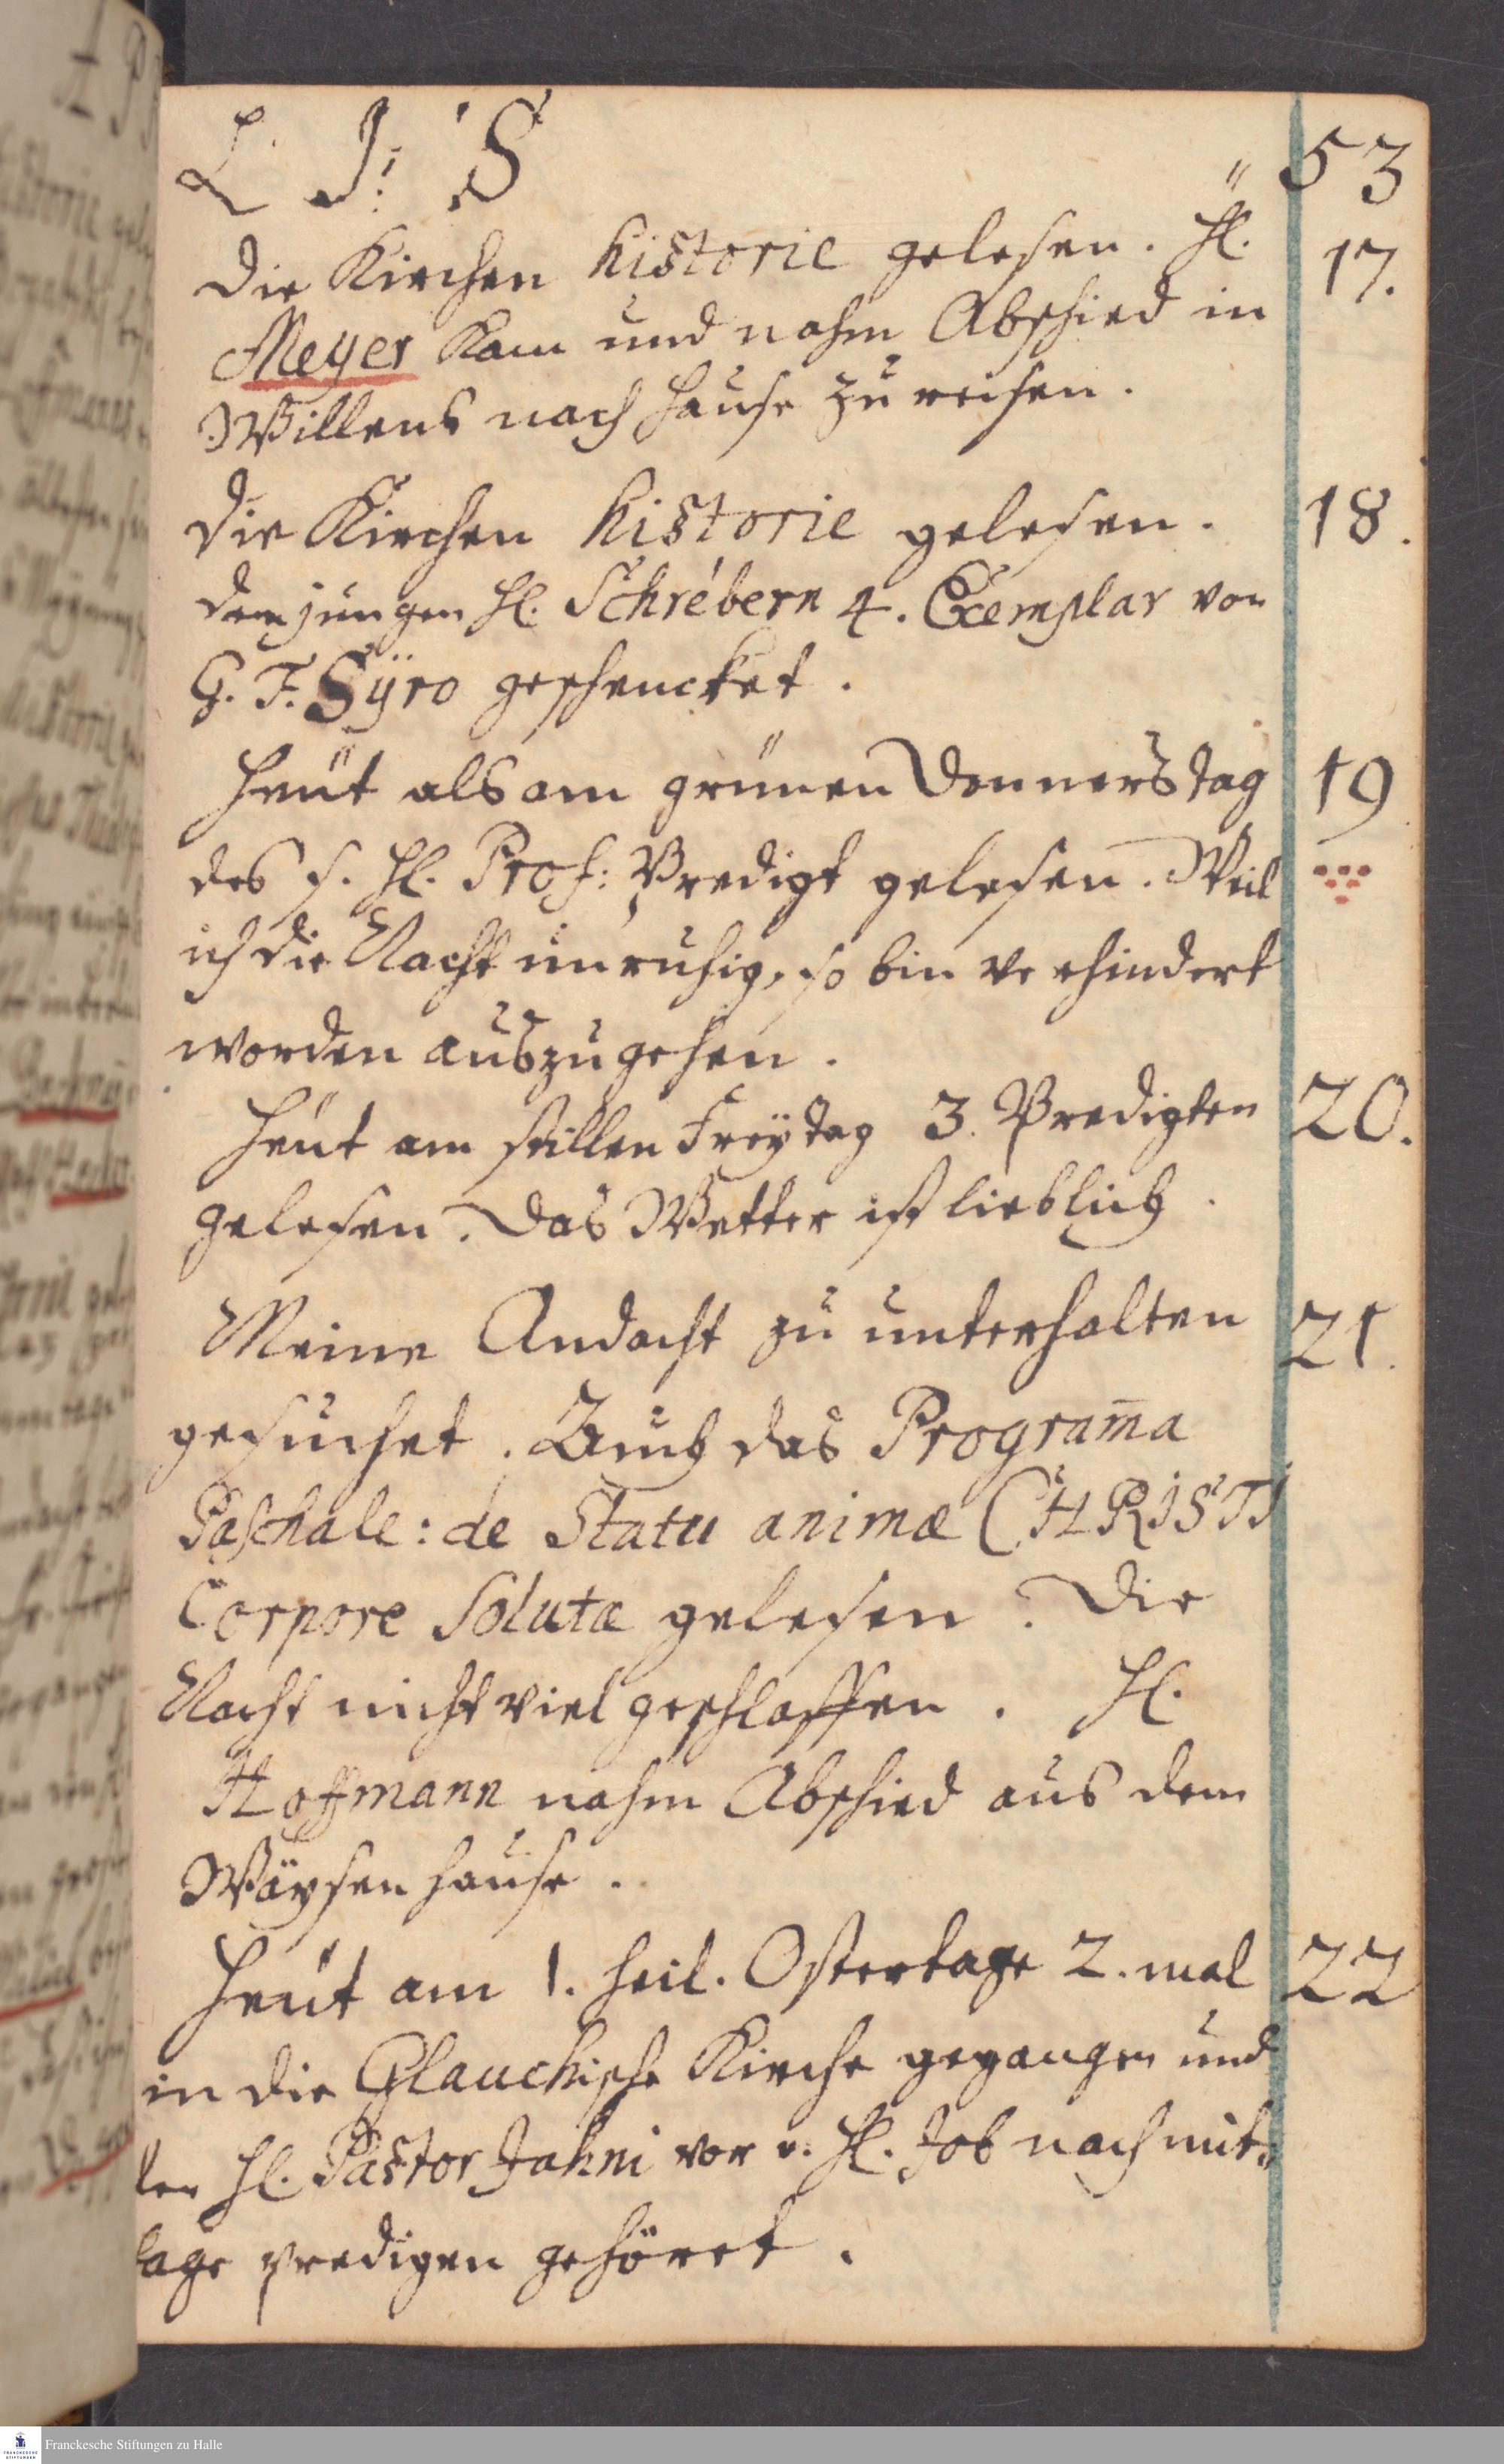 L. J: S
53
Die Kirchen historie gelesen. H. 17.
Meyer kam und nahm Abschied in
Willens nach Hause zu reisen.
Die Kirchen historie gelesen. 18.
dem jungen H. Schrebern 4. Exemplar von
G. F. Syro geschencket.
Heut als am grünen Donnerstag 19
des s. H. Prof: Predigt gelesen. Weil
ich die Nacht unruhig, so bin verhindert
worden auszugehen.
Heut am stillen Freytag 3. Predigten 20.
gelesen. Das Wetter ist lieblich.
Meine Andacht zu unterhalten 21.
gesuchet. Auch das Programa
Paschale: de Statu animæ CHRISTI
Corpore Solutæ gelesen. Die
Nacht nicht viel geschlaffen. H.
Hoffmann nahm Abschied aus dem
Wäysenhause.
Heut am 1. heil. Ostertage 2. mal 22
in die Glauchische Kirche gegangen und
den H. Pastor Jahni vor u. H. Job nachmit-
tage predigen gehöret.
Franckesche Stiftungen zu Halle